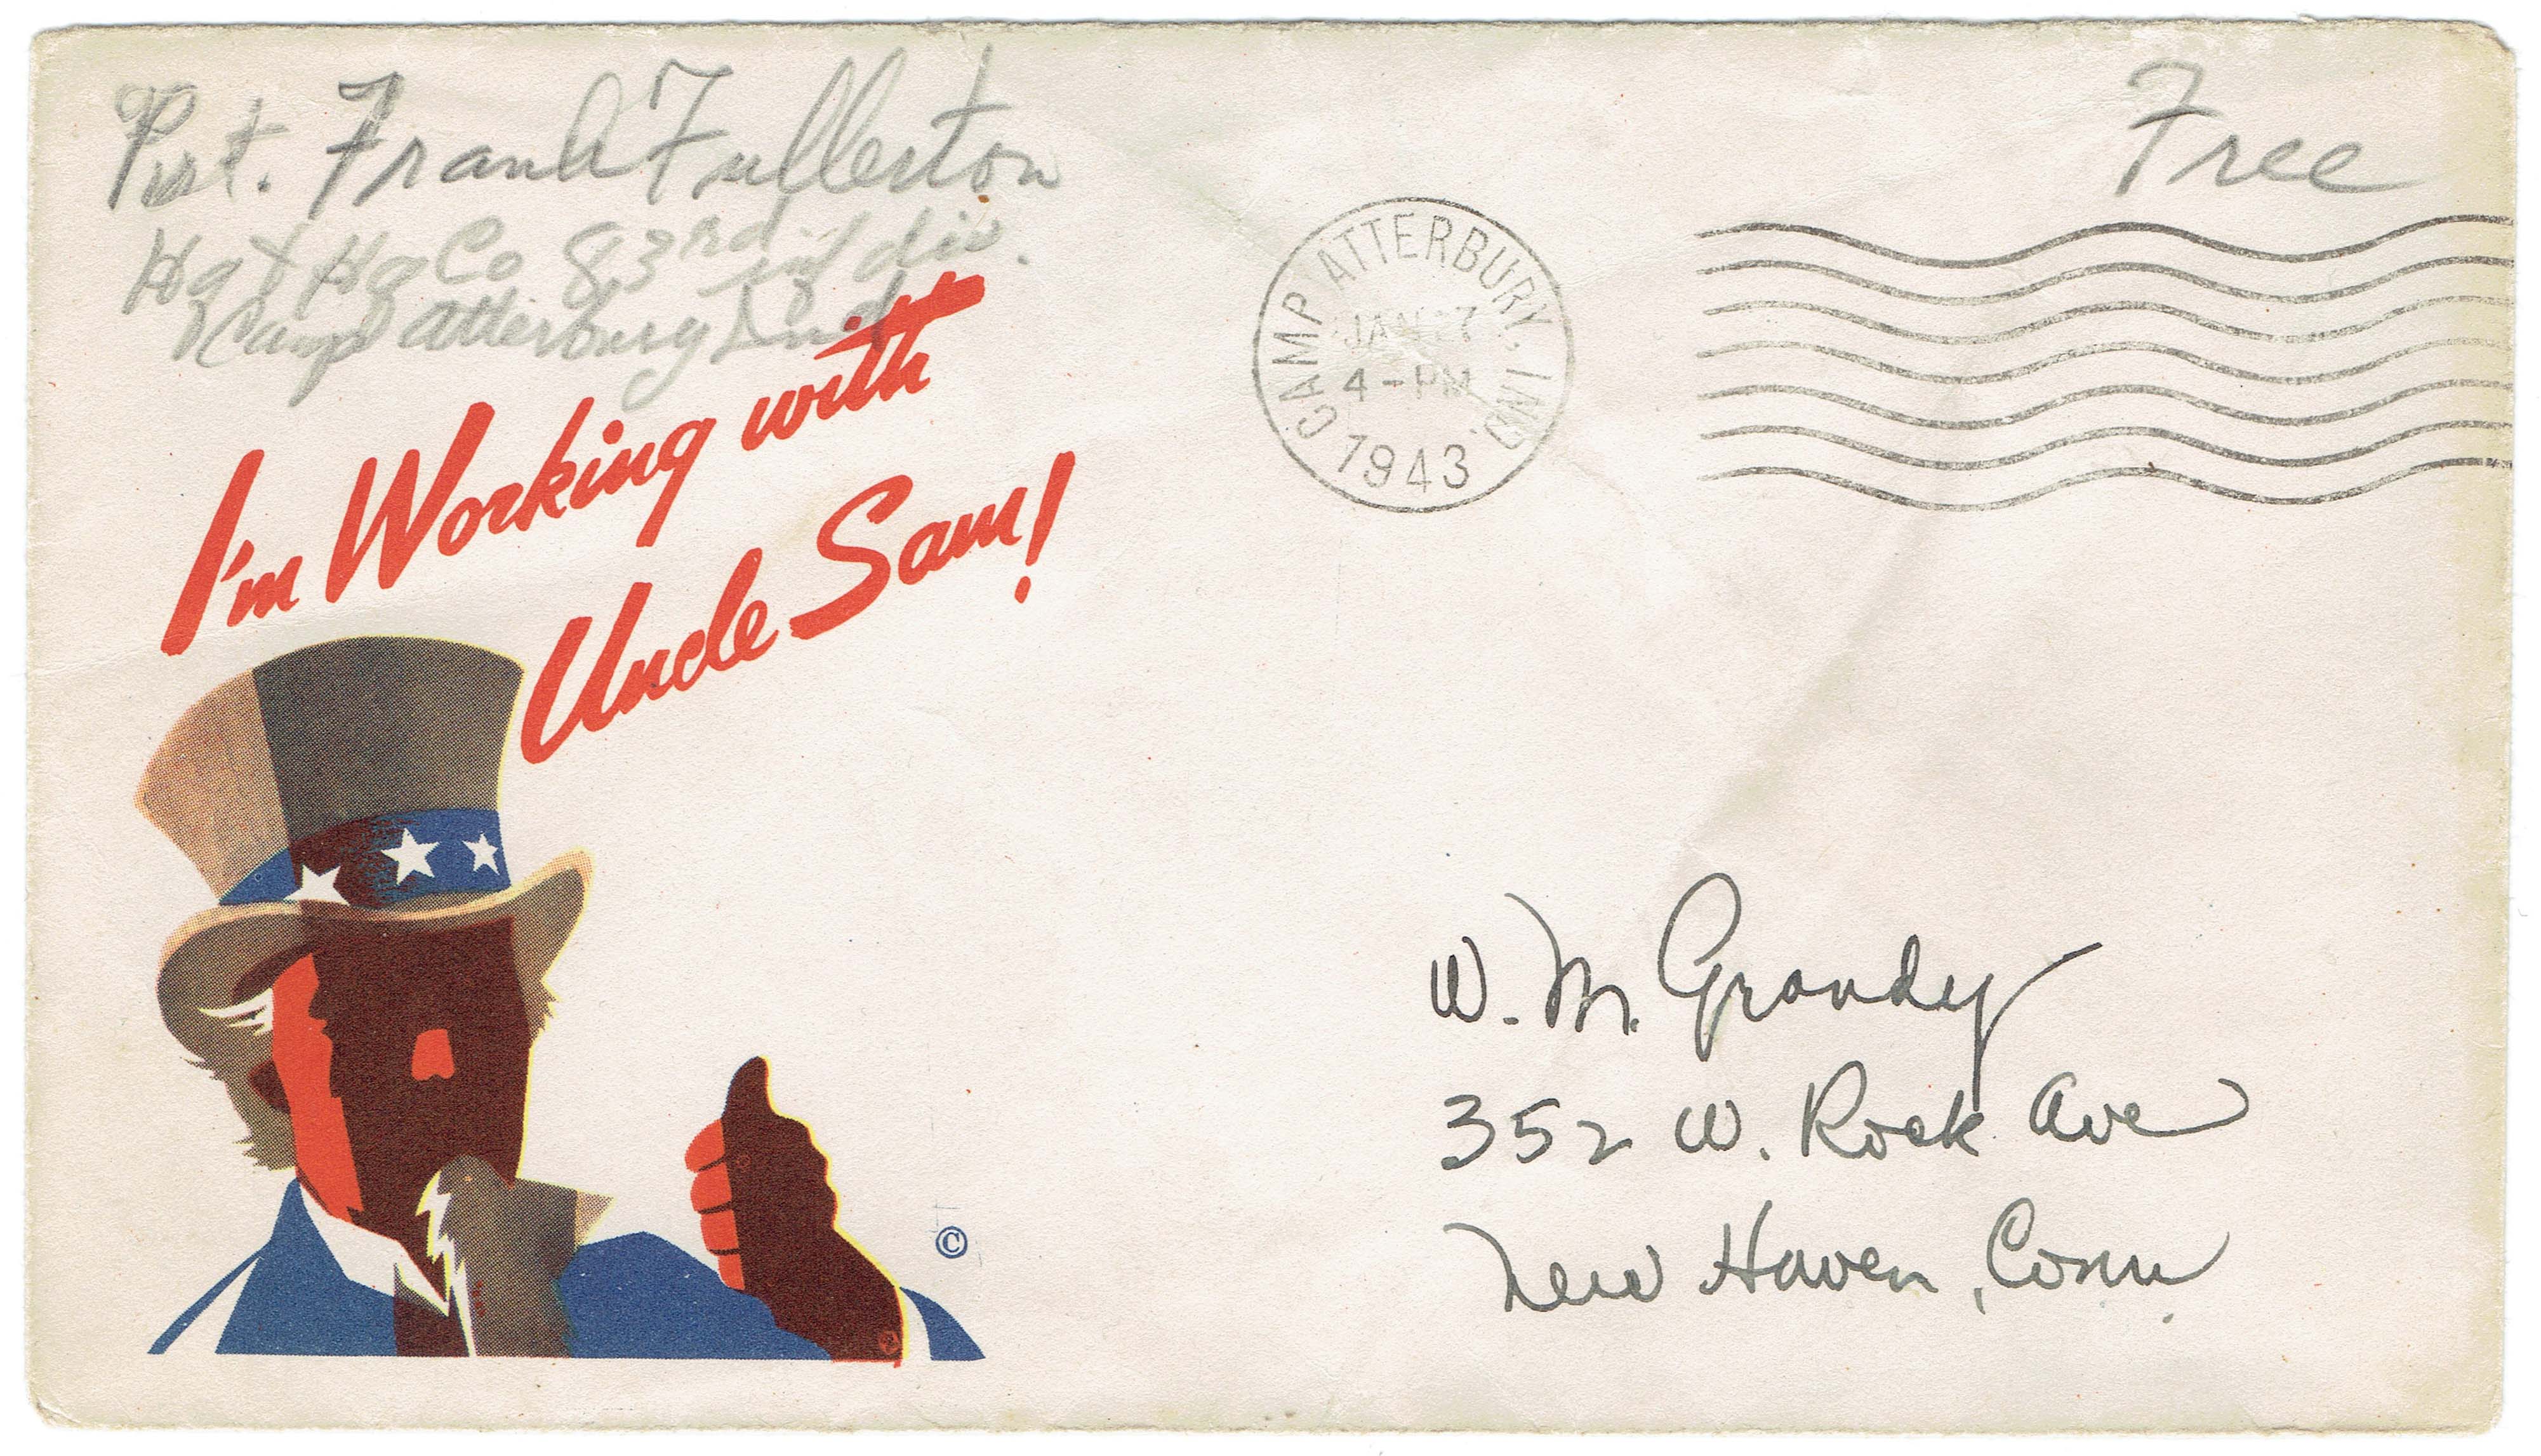 Pvt. Frank Fullerton
Hq & Hq Co 83rd inf div.
Camp Atterbury Ind
Free
CAMP ATTERBURY, IND.
JAN 7
4-PM
1943
I'm Working with
Uncle Sam!
W. M. Grandy
352 W. Rock Ave
New Haven, Conn
©